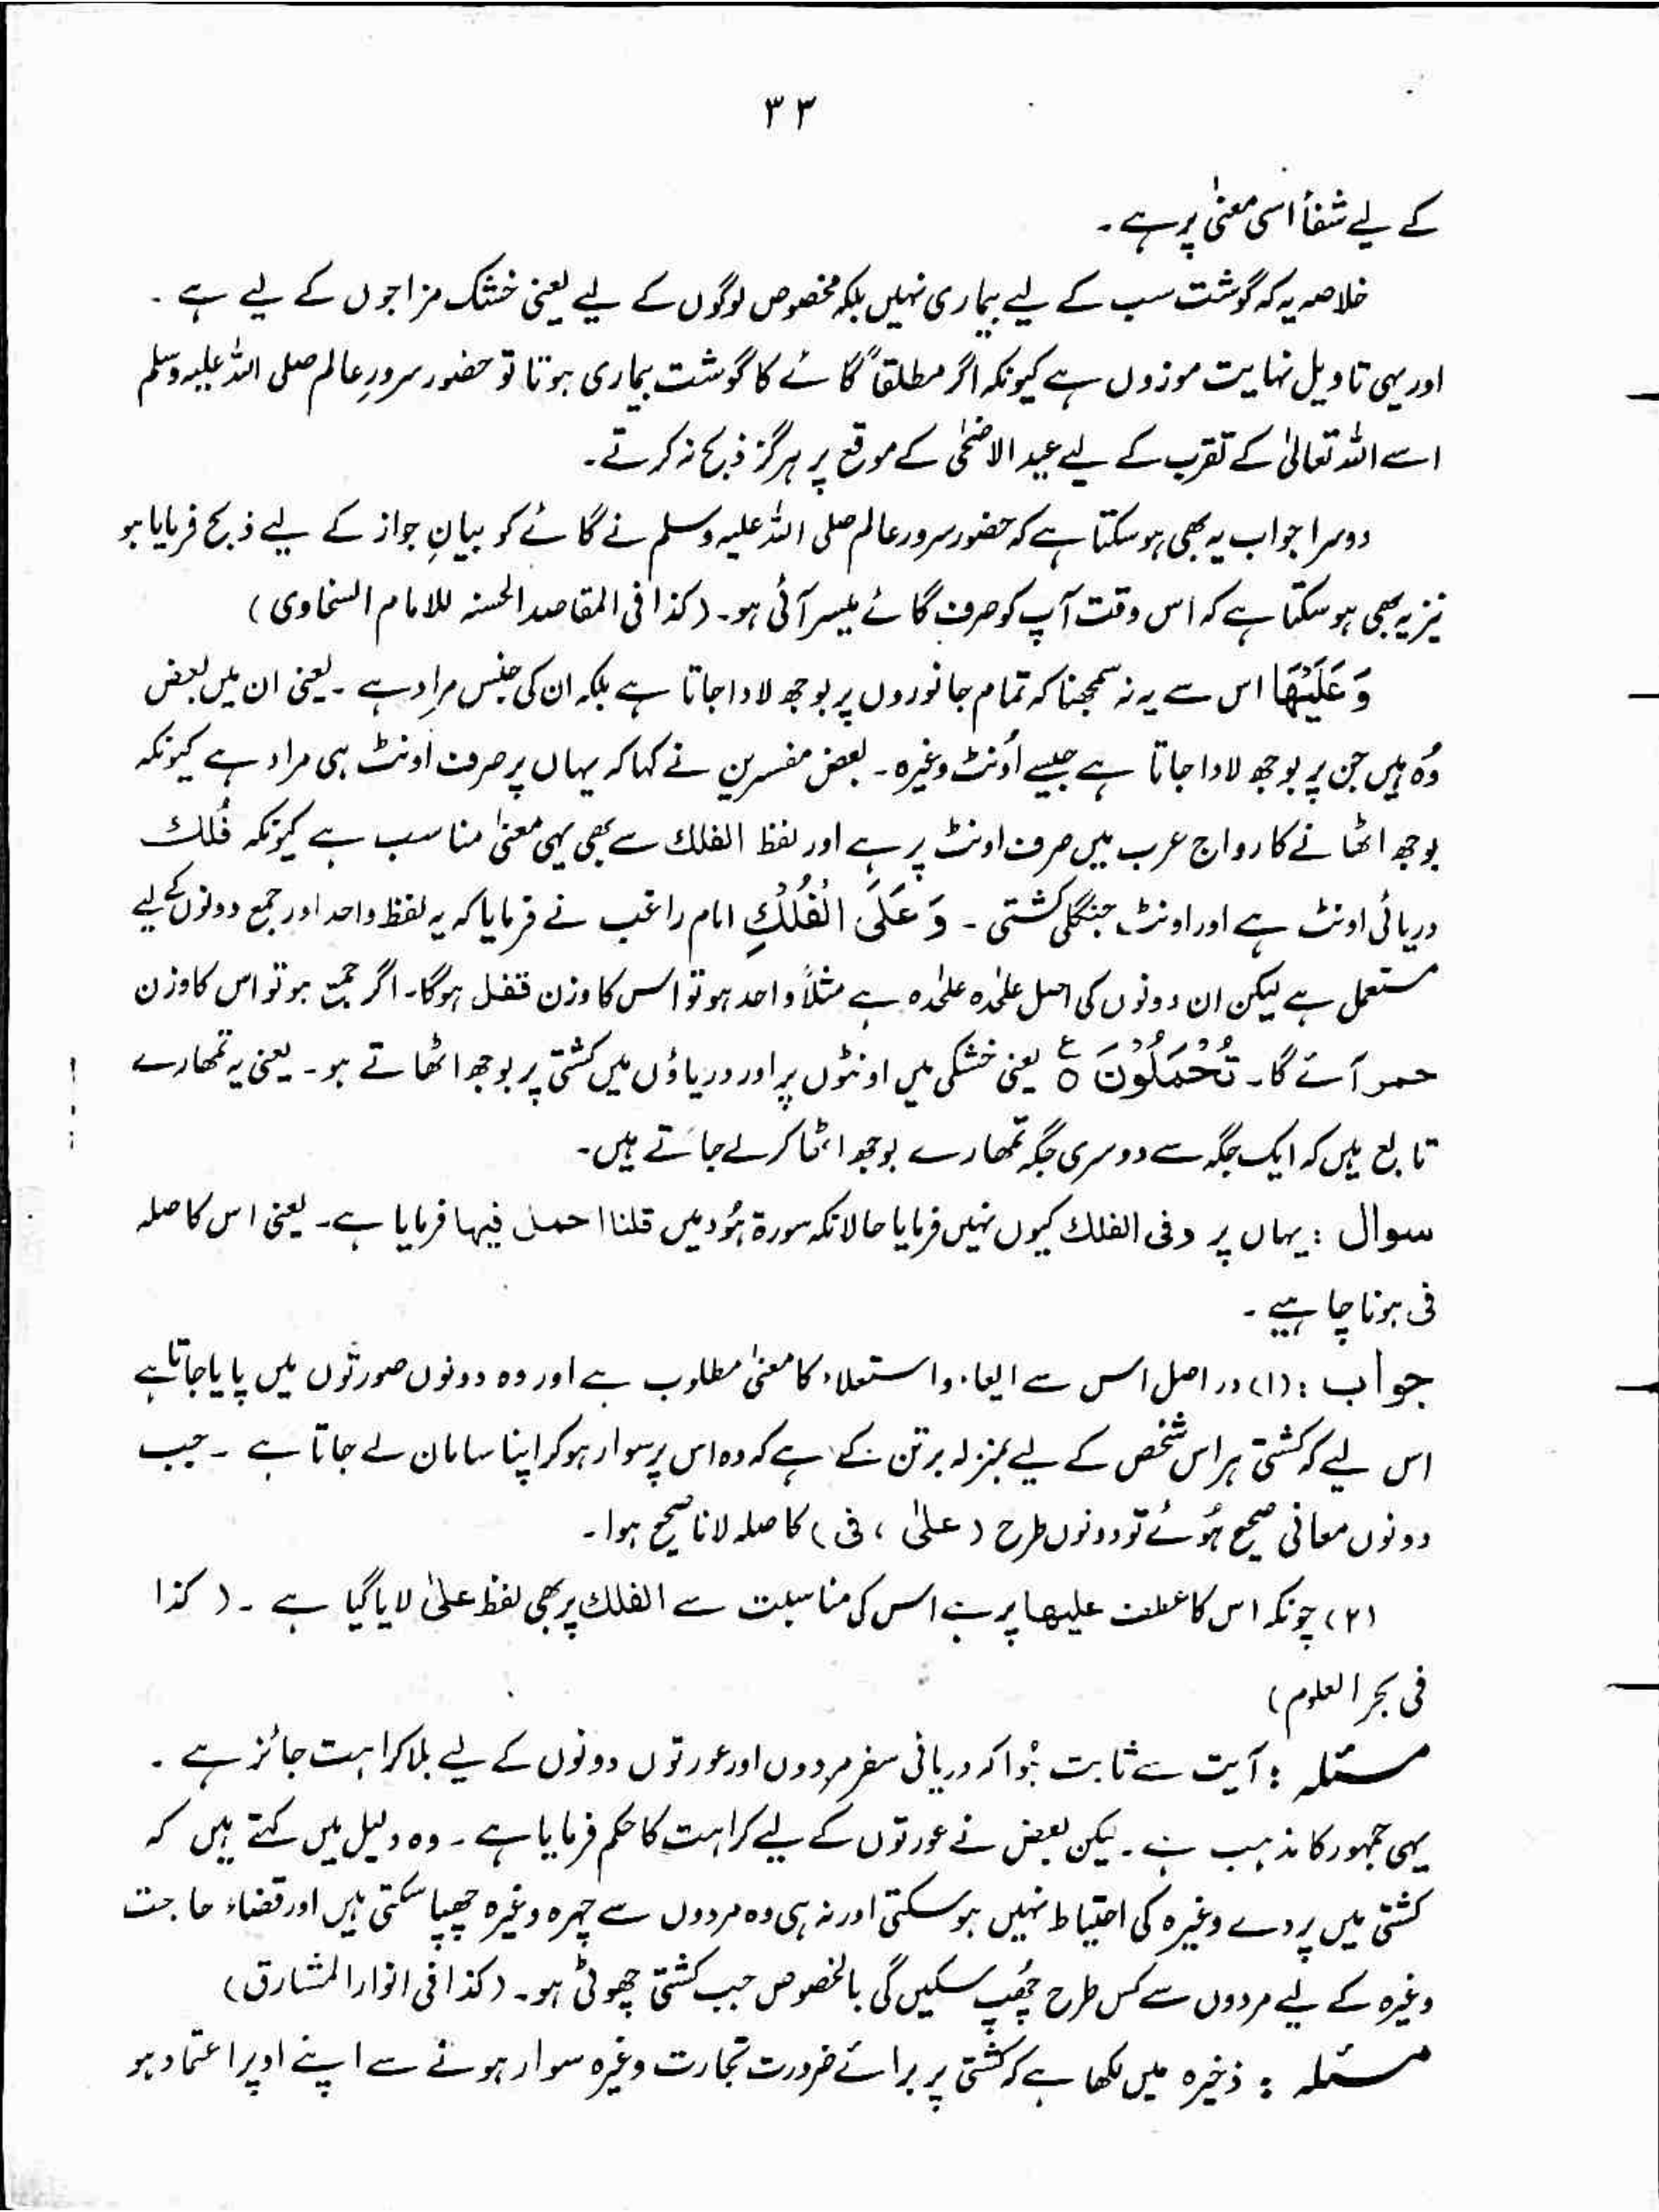 ۳۳
کے لیے شفأ اسی معنیٰ پر ہے۔
خلاصہ یہ کہ گوشت سب کے لیے بیماری نہیں بلکہ مخصوص لوگوں کے لیے یعنی خشک مزاجوں کے لیے ہے۔
اور یہی تاویل نہایت موزوں ہے کیونکہ اگر مطلقاً گائے کا گوشت بیماری ہوتا تو حضور سرورِ عالم صلی اللہ علیہ وسلم
اسے اللہ تعالیٰ کے تقرب کے لیے عید الاضحیٰ کے موقع پر ہرگز ذبح نہ کرتے۔
دوسرا جواب یہ بھی ہو سکتا ہے کہ حضور سرور عالم صلی اللہ علیہ وسلم نے گائے کو بیانِ جواز کے لیے ذبح فرمایا ہو
نیز یہ بھی ہو سکتا ہے کہ اس وقت آپ کو صرف گائے میسر آئی ہو۔ (کذا فی المقاصد الحسنہ للامام السخاوی)
وَعَلَيْهَا اس سے یہ نہ سمجھنا کہ تمام جانوروں پر بوجھ لادا جاتا ہے بلکہ ان کی جنس مراد ہے۔ یعنی ان میں بعض
وُہ ہیں جن پر بوجھ لادا جاتا ہے جیسے اُونٹ وغیرہ۔ بعض مفسرین نے کہا کہ یہاں پر صرف اونٹ ہی مراد ہے کیونکہ
بوجھ اٹھانے کا رواج عرب میں صرف اونٹ پر ہے اور لفظ الفلك سے بھی یہی معنیٰ مناسب ہے کیونکہ فُلك
دریائی اونٹ ہے اور اونٹ جنگلی کشتی۔ وَعَلَى الْفُلْكِ امام راغب نے فرمایا کہ یہ لفظ واحد اور جمع دونوں کے لیے
مستعمل ہے لیکن ان دونوں کی اصل علیٰحدہ علیٰحدہ ہے مثلاً واحد ہو تو اس کا وزن قفل ہوگا۔ اگر جمع ہو تو اس کا وزن
حمر آئے گا۔ تُحْمَلُوْنَ ○ ع یعنی خشکی میں اونٹوں پر اور دریاؤں میں کشتی پر بوجھ اٹھاتے ہو۔ یعنی یہ تمھارے
تابع ہیں کہ ایک جگہ سے دوسری جگہ تمھارے بوجھ اٹھا کر لے جاتے ہیں۔
سوال : یہاں پر وفی الفلك کیوں نہیں فرمایا حالانکہ سورۃ ہُود میں قلنا احمل فیہا فرمایا ہے۔ یعنی اس کا صلہ
فی ہونا چاہیے۔
جواب : (۱) دراصل اس سے ایعاء و استعلاء کا معنیٰ مطلوب ہے اور وہ دونوں صورتوں میں پایا جاتا ہے
اس لیے کہ کشتی ہر اس شخص کے لیے بمنزلہ برتن کے ہے کہ وہ اس پر سوار ہو کر اپنا سامان لے جاتا ہے۔ جب
دونوں معانی صحیح ہُوئے تو دونوں طرح (علیٰ ، فی) کا صلہ لانا صحیح ہوا۔
(۲) چونکہ اس کا عطف علیھا پر ہے اس کی مناسبت سے الفلك پر بھی لفظ علیٰ لایا گیا ہے۔ (کذا
فی بحر العلوم)
مسئلہ : آیت سے ثابت ہُوا کہ دریائی سفر مردوں اور عورتوں دونوں کے لیے بلا کراہت جائز ہے۔
یہی جمہور کا مذہب ہے۔ لیکن بعض نے عورتوں کے لیے کراہت کا حکم فرمایا ہے۔ وہ دلیل میں کہتے ہیں کہ
کشتی میں پردے وغیرہ کی احتیاط نہیں ہو سکتی اور نہ ہی وہ مردوں سے چہرہ وغیرہ چھپا سکتی ہیں اور قضاء حاجت
وغیرہ کے لیے مردوں سے کس طرح چُھپ سکیں گی بالخصوص جب کشتی چھوٹی ہو۔ (کذا فی انوار المشارق)
مسئلہ : ذخیرہ میں لکھا ہے کہ کشتی پر برائے ضرورت تجارت وغیرہ سوار ہونے سے اپنے اوپر اعتماد ہو